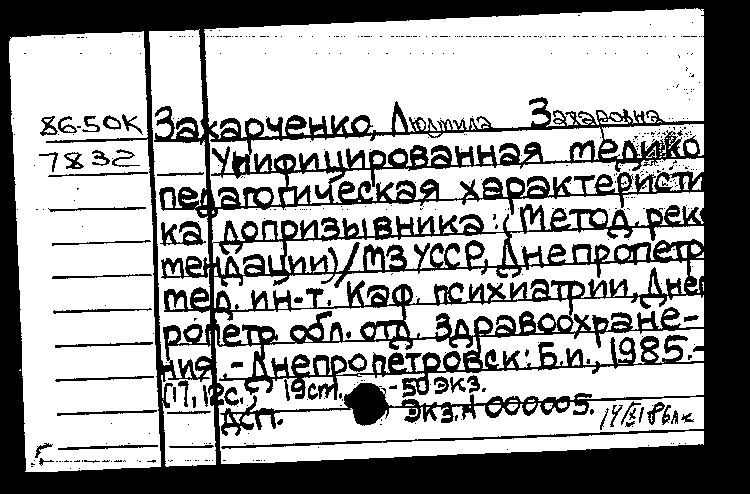 86-50К Захарченко, Людмила Захаровна
7832 Унифицированная медико
педагогическая характеристи
ка допризывника: (Метод. рек
мендации)/МЗ УССР, Днепропетр
мед. ин-т. Каф. психиатрии, Дне
ропетр. обл. отд. здравоохране-
ния. - Днепропетровск: Б.и., 1985.-
12с.; 19см. -50 экз.
ДСП. Экз.N 000005.